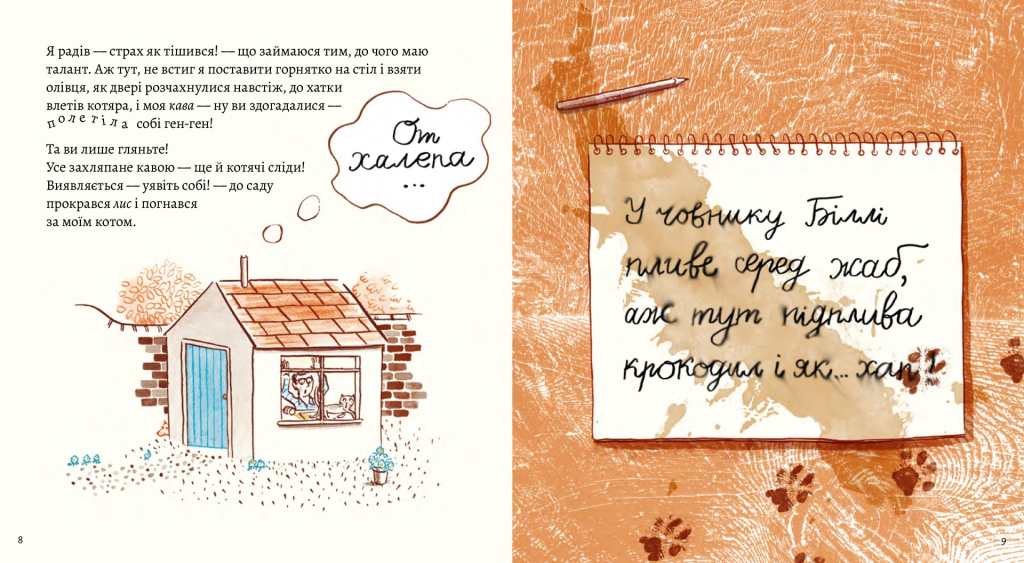 Я радів — страх як тішився! — що займаюся тим, до чого маю
талант. Аж тут, не встиг я поставити горнятко на стіл і взяти
олівця, як двері розчахнулися навстіж, до хатки
влетів котяра, і моя кава — ну ви здогадалися —
полетіла собі ген-ген!
Та ви лише гляньте!
Усе захляпане кавою — ще й котячі сліди!
Виявляється — уявіть собі! — до саду
прокрався лис і погнався
за моїм котом.
От
халепа
...
8
У човнику Біллі
пливе серед жаб,
аж тут підплива
крокодил і як... хап!
9